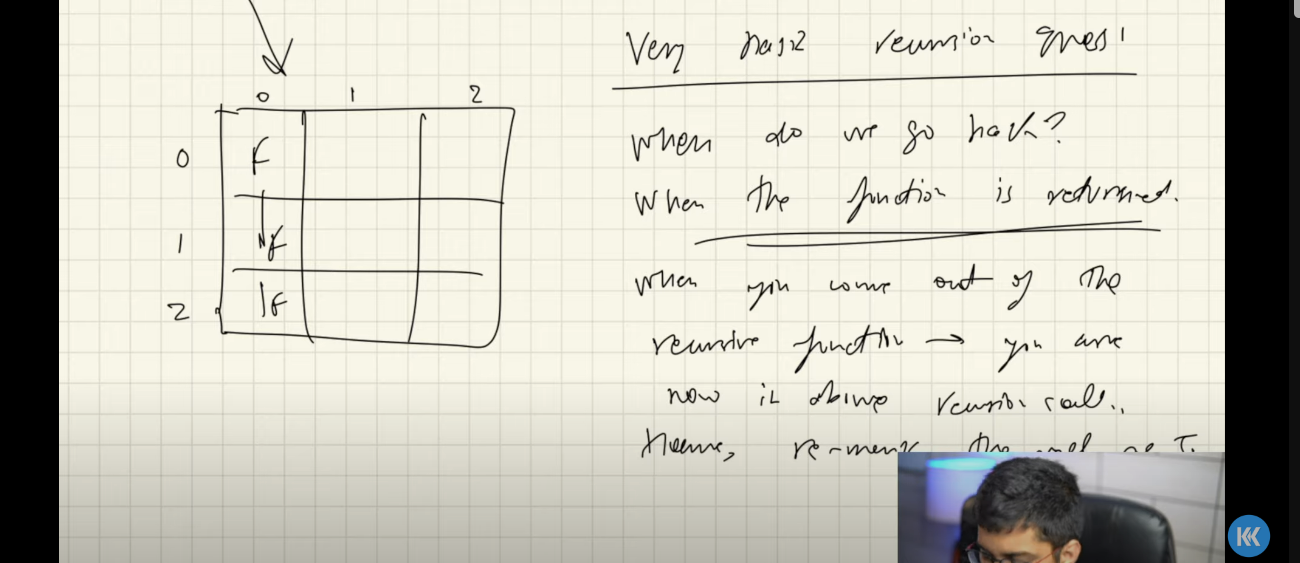 Very basic recursion ques!
0 1 2
When do we go back?
0 F
When the function is returned.
1 F
when you come out of the
2 F
recursive function → you are
now in above recursion call..
Hence, re-mark the